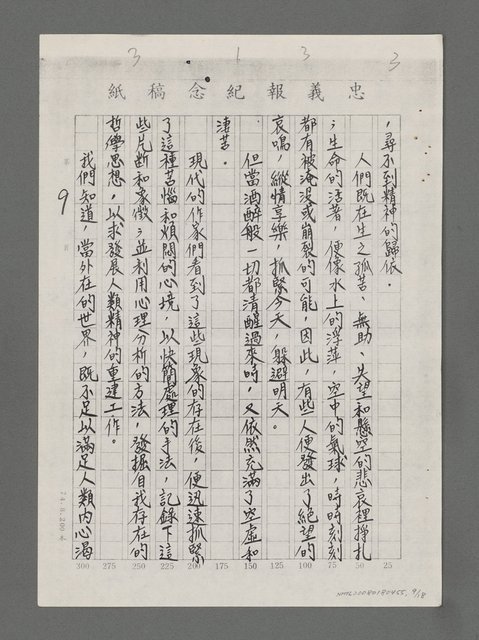 3 1 3 3
忠義報紀念稿紙
，尋不到精神的歸依．
人們既在生之孤苦、無助、失望和懸空的悲哀裡掙扎
；生命的活著，便像水上的浮萍，空中的氣球，時時刻刻
都有被淹沒或崩裂的可能，因此，有些人便發出了絕望的
哀鳴，縱情享樂，抓緊今天，躲避明天。
但當酒醉般一切都清醒過來時，又依然充滿了空虛和
淒苦．
現代的作家們看到了這些現象的存在後，便迅速抓緊
了這種苦惱和煩悶的心境，以快簡處理的手法，記錄下這
些片斷和象徵；並利用心理分析的方法，發掘自我存在的
哲學思想，以求發展人類精神的重建工作。
我們知道，當外在的世界，既不足以滿足人類內心渴
9
74.8.200本
300 275 250 225 200 175 150 125 100 75 50 25
NMTL20080180455, 9/18